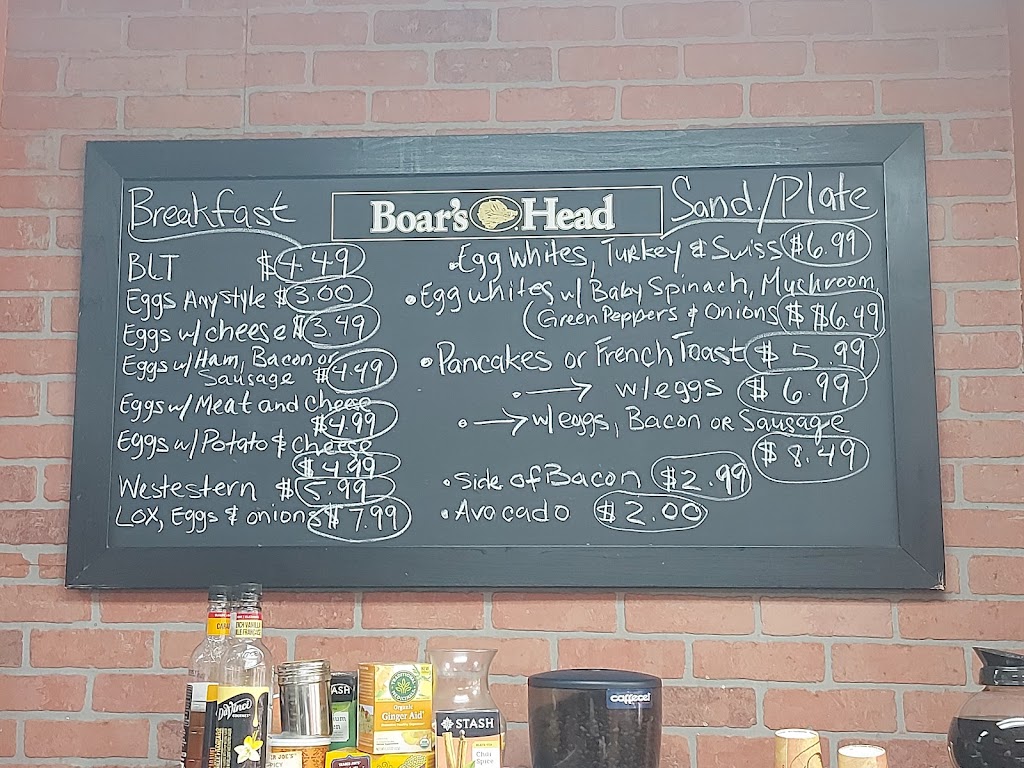 Breakfast
Boar's Head
Sand/Plate
BLT $4.49
Eggs Any Style $3.00
Eggs w/ cheese $3.49
Eggs w/ Ham, Bacon or
Sausage $4.49
Eggs w/ Meat and Cheese
$4.99
Eggs w/ Potato & Cheese
$4.99
Westestern $5.99
LOX, Eggs & onions $7.99
• Egg Whites, Turkey & Swiss $6.99
• Egg whites w/ Baby Spinach, Mushroom,
(Green Peppers & Onions $ $6.49
• Pancakes or French Toast $5.99
• → w/eggs $6.99
• → w/eggs, Bacon or Sausage
$8.49
• Side of Bacon $2.99
• Avocado $2.00
DaVinci
GOURMET
TRADITIONAL MEDICINALS
Organic
Ginger Aid
STASH
Chai
Spice
coffee!